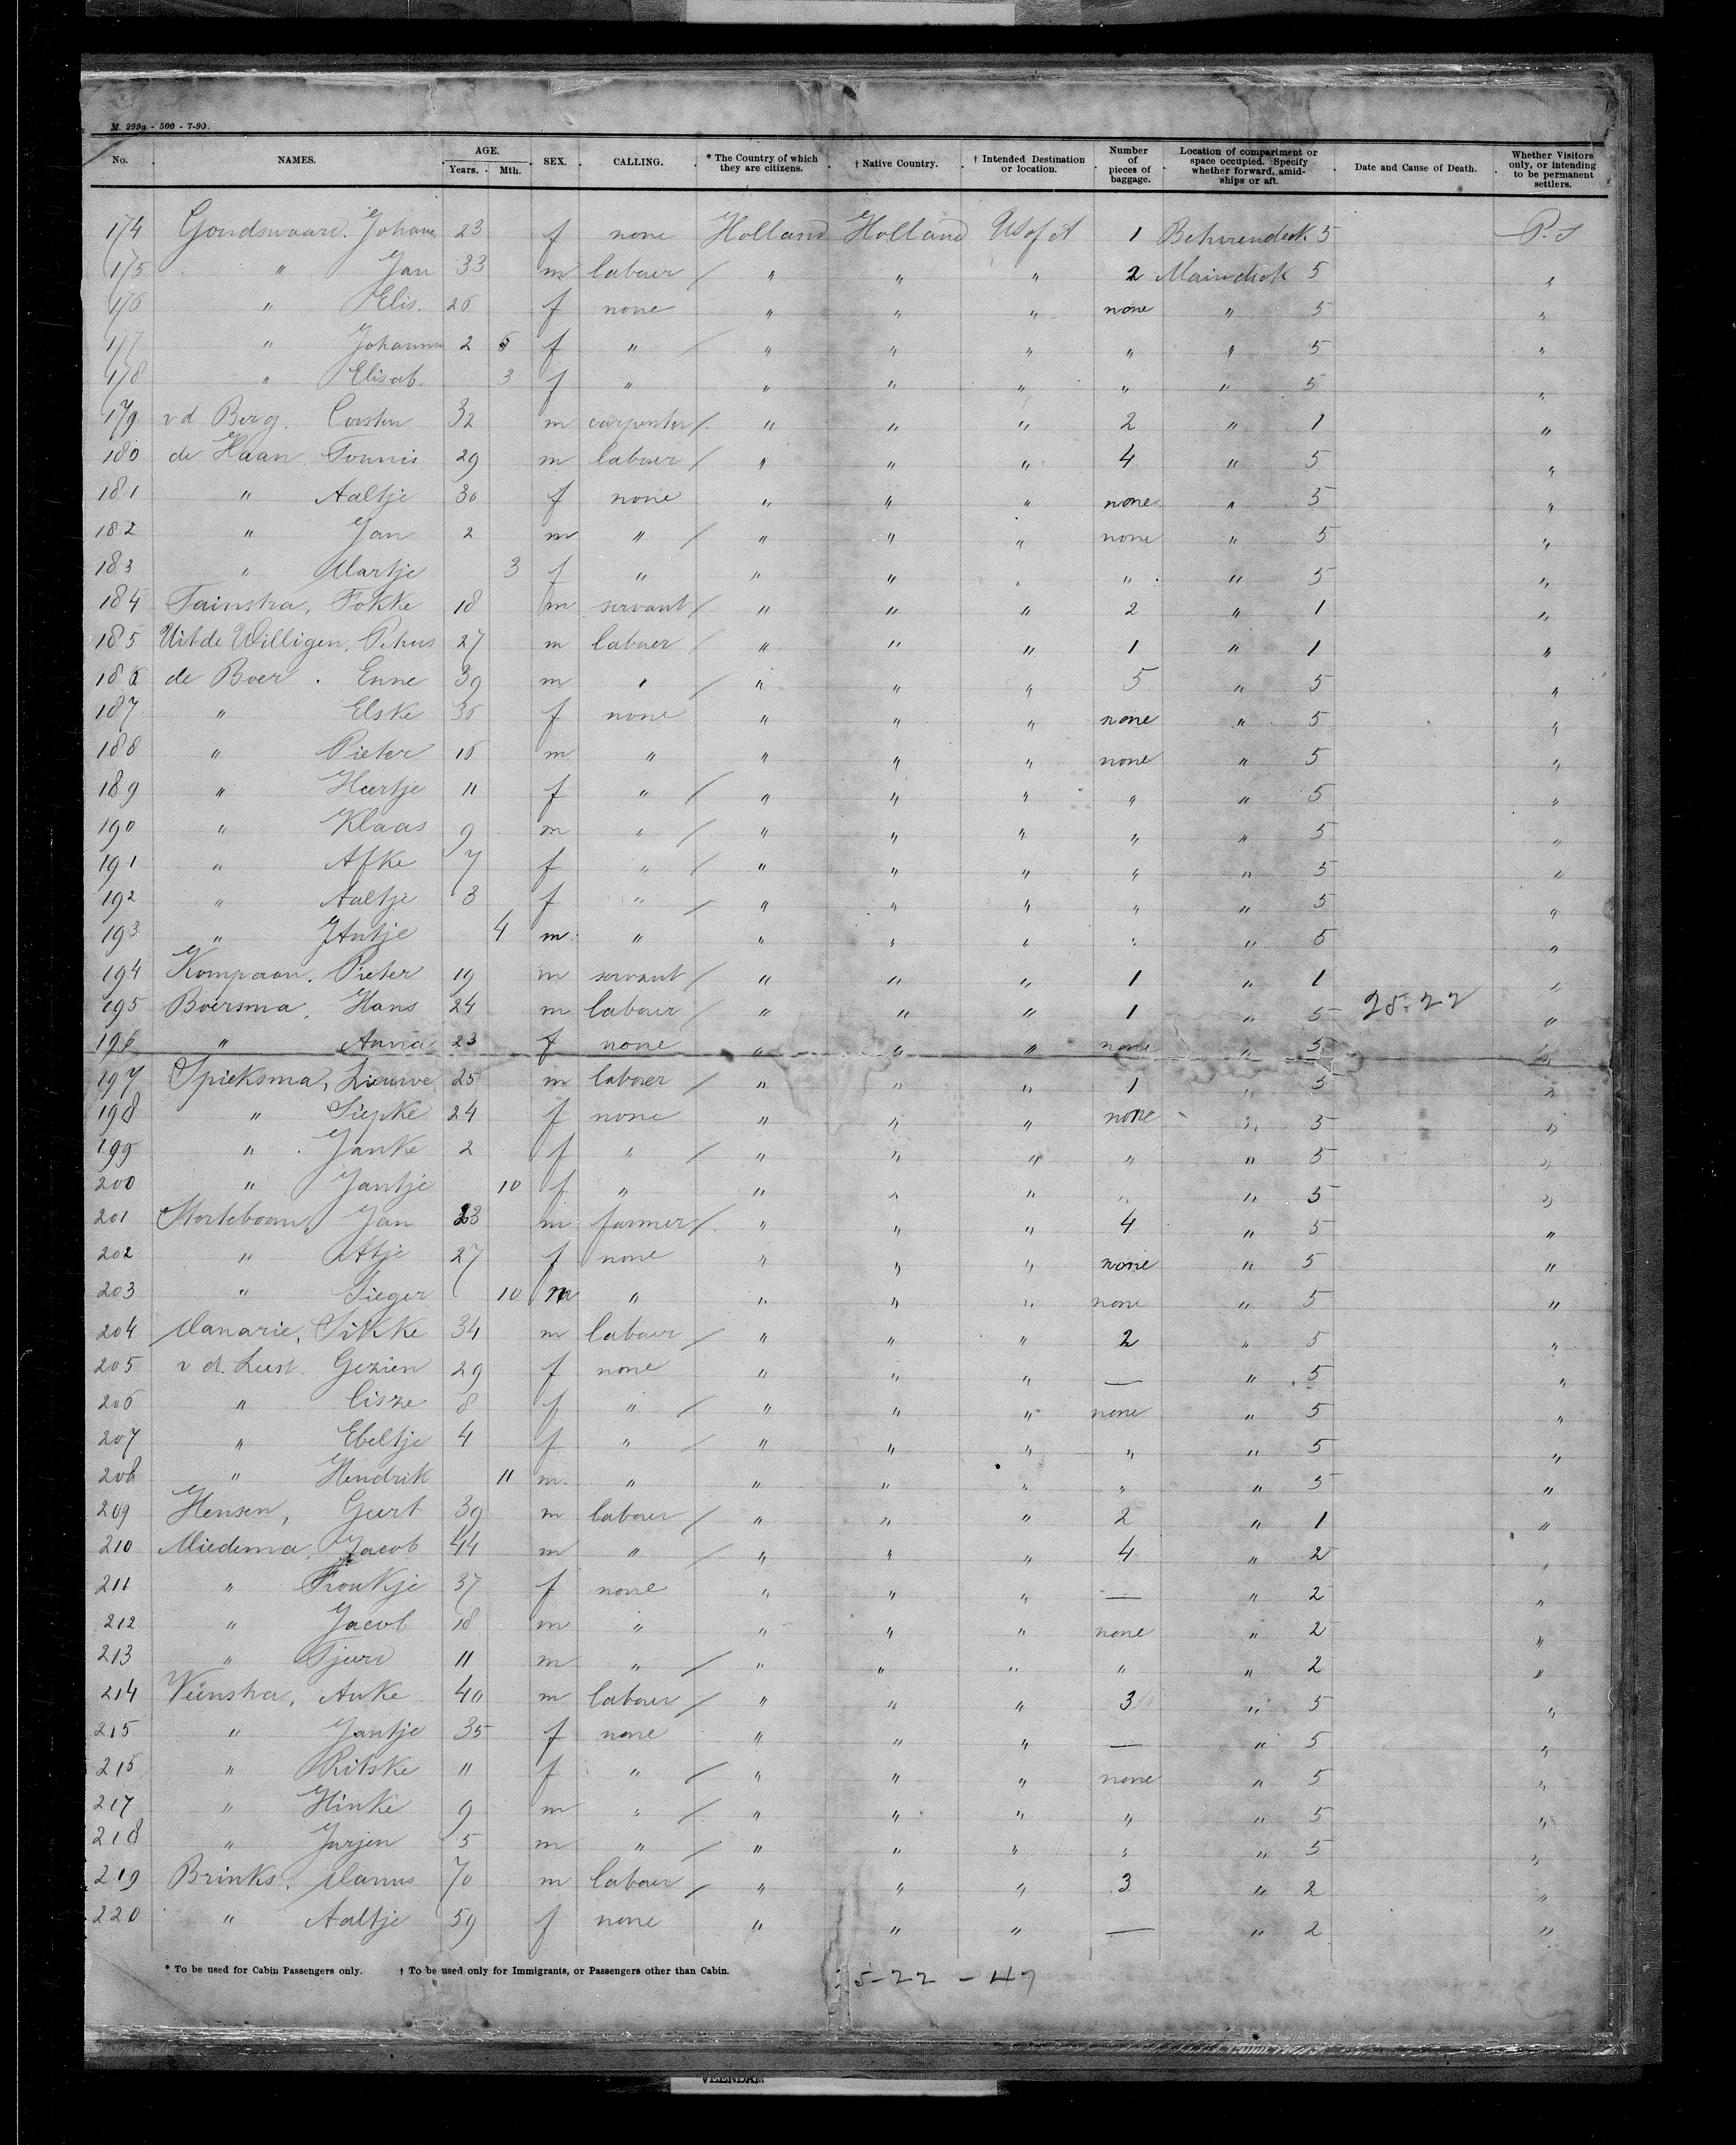 M. 299a - 500 - 7-90.
No. NAMES. AGE. Years. Mth. SEX. CALLING. * The Country of which they are citizens. † Native Country. † Intended Destination or location. Number of pieces of baggage. Location of compartment or space occupied. Specify whether forward, amidships or aft. Date and Cause of Death. Whether Visitors only, or intending to be permanent settlers.
174 Goudswaard. Johana 23 f none Holland Holland US of A 1 Betweendeck 5 P.S
175 " Jan 33 m labouer / " " " 2 Maindeck 5 "
176 " Elis. 26 f none " " " none " 5 "
177 " Johanna 2 6 f " / " " " " " 5 "
178 " Elisab. 3 f " " " " " " 5 "
179 v d Berg. Corsten 32 m carpenter / " " " 2 " 1 "
180 de Haan Tonnis 29 m labouer / " " " 4 " 5 "
181 " Aaltje 30 f none " " " none " 5 "
182 " Jan 2 m " / " " " none " 5 "
183 " Martje 3 f " " " " " " 5 "
184 Tainstra, Fokke 18 m servant / " " " 2 " 1 "
185 Uit de Willigen, Petrus 27 m labouer / " " " 1 " 1 "
186 de Boer. Enne 39 m " / " " " 5 " 5 "
187 " Elske 36 f none " " " none " 5 "
188 " Pieter 16 m " " " " none " 5 "
189 " Heertje 11 f " / " " " " " 5 "
190 " Klaas 9 m " / " " " " " 5 "
191 " Afke 7 f " / " " " " " 5 "
192 " Aaltje 3 f " / " " " " " 5 "
193 " Antje 4 m " " " " " " 5 "
194 Kompaan. Pieter 19 m servant / " " " 1 " 1 "
195 Boersma, Hans 24 m labouer / " " " 1 " 5 25-22 "
196 " Anna 23 f none " " " none " 5 "
197 Spieksma, Lieuwe 25 m labouer / " " " 1 " 5 "
198 " Siepke 24 f none " " " none " 5 "
199 " Janke 2 f " / " " " " " 5 "
200 " Jantje 10 f " " " " " " 5 "
201 Storteboom, Jan 33 m farmer / " " " 4 " 5 "
202 " Atje 27 f none " " " none " 5 "
203 " Sieger 10 m " " " " none " 5 "
204 Manarie, Sikke 34 m labouer / " " " 2 " 5 "
205 v d. Leest. Gezien 29 f none " " " — " 5 "
206 " 8 f " / " " " none " 5 "
207 " Ebeltje 4 f " / " " " " " 5 "
208 " Hendrik 11 m " " " " " " 5 "
209 Hensen, Geert 39 m labouer / " " " 2 " 1 "
210 Miedema, Jacob 44 m " / " " " 4 " 2 "
211 " Froukje 37 f none " " " — " 2 "
212 " Jacob 18 m " " " " none " 2 "
213 " Tjeerd 11 m " / " " " " " 2 "
214 Veenstra, Auke 40 m labouer / " " " 3 " 5 "
215 " Jantje 35 f none " " " — " 5 "
216 " Ritske 11 f " / " " " none " 5 "
217 " Hinke 9 m " / " " " " " 5 "
218 " Jurjen 5 m " / " " " " " 5 "
219 Brinks. Manus 70 m labouer / " " " 3 " 2 "
220 " Aaltje 59 f none " " " — " 2 "
* To be used for Cabin Passengers only. † To be used only for Immigrants, or Passengers other than Cabin.
5-22 - 47
VEENDAM